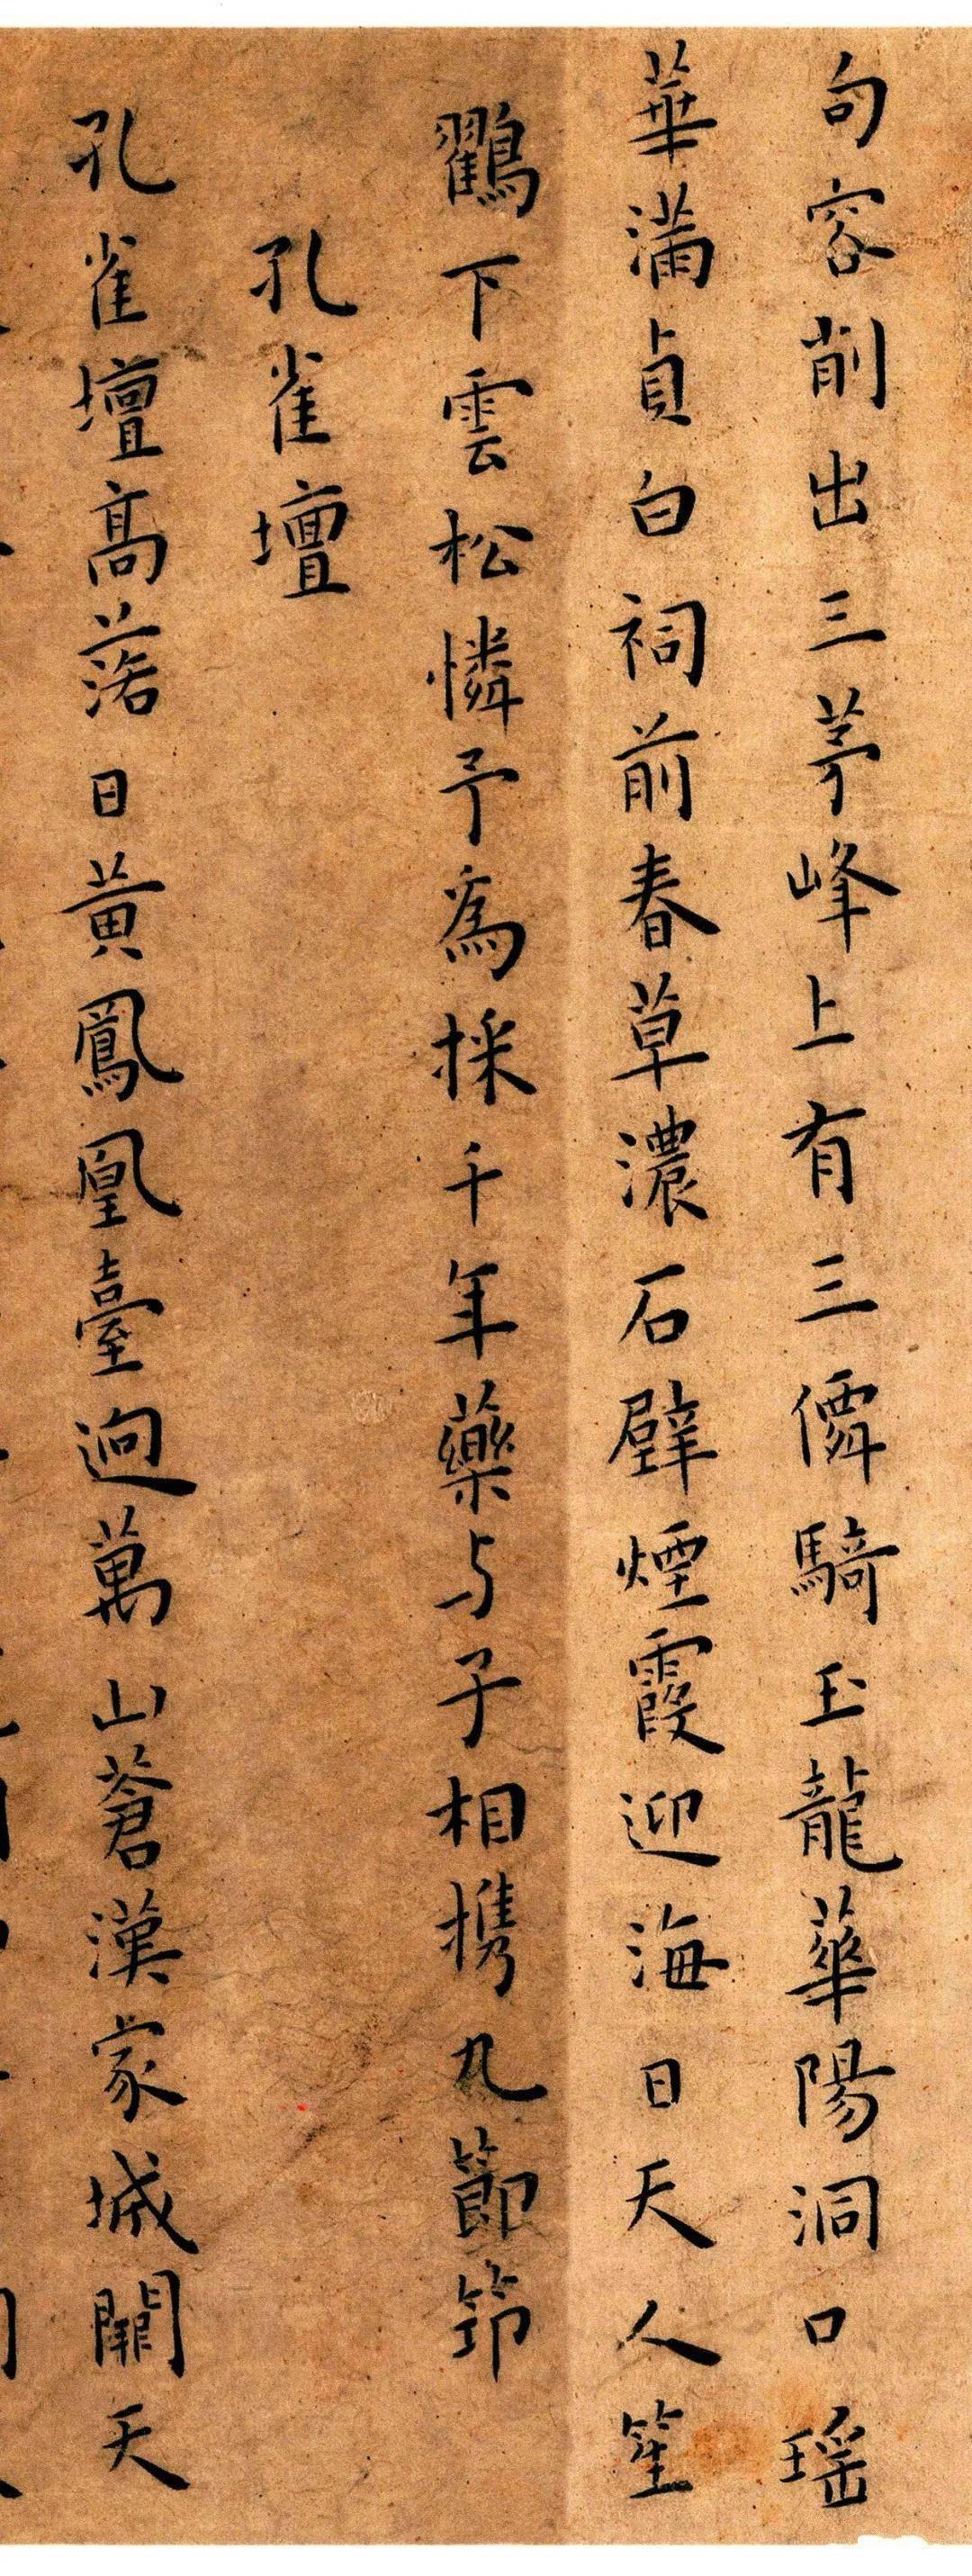 句容削出三茅峰上有三僊騎玉龍華陽洞口瑶
華滿貞白祠前春草濃石壁煙霞迎海日天人笙
鸖下雲松憐予為採千年藥与子相携九節筇
孔雀壇
孔雀壇髙落日黄鳳凰臺逈萬山蒼漢家城闕天